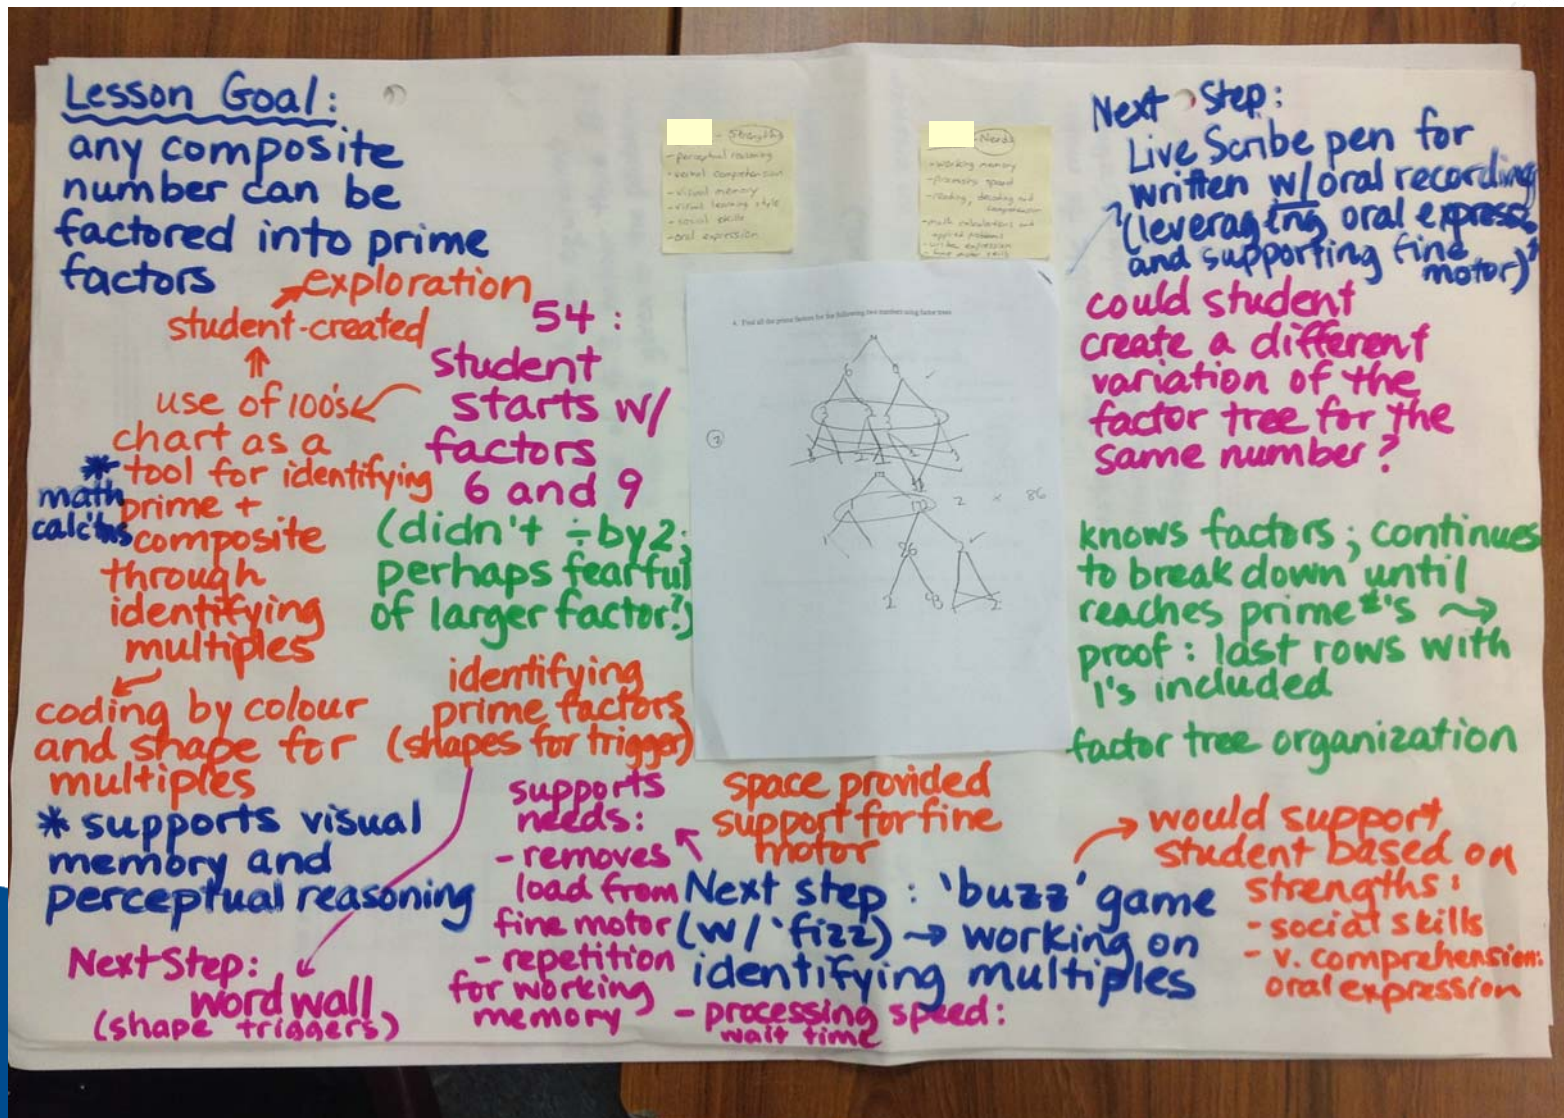 Lesson Goal:
any composite
number can be
factored into prime
factors
exploration
student-created
use of 100's
chart as a
* tool for identifying
prime +
composite
through
identifying
multiples
math
calc'ns
coding by colour
and shape for
multiples
* supports visual
memory and
perceptual reasoning
Next Step:
word wall
(shape triggers)
54:
student
starts w/
factors
6 and 9
(didn't ÷ by 2;
perhaps fearful
of larger factor?)
identifying
prime factors
(shapes for trigger)
supports
needs:
- removes
load from
fine motor
- repetition
for working
memory
- processing speed:
wait time
- Strengths
- perceptual reasoning
- verbal comprehension
- visual memory
- visual learning style
- social skills
- oral expression
Needs
- working memory
- processing speed
- reading, decoding and
comprehension
- math calculations and
applied problems
- written expression
- fine motor skills
4. Find all the prime factors for the following two numbers using factor trees
6 9
2 x 86
86
2 43
space provided
support for fine
motor
Next step: 'buzz' game
(w/ 'fizz) → working on
identifying multiples
Next Step:
Live Scribe pen for
written w/oral recording
(leveraging oral express.
and supporting fine
motor)
could student
create a different
variation of the
factor tree for the
same number?
knows factors; continues
to break down until
reaches prime #'s →
proof: last rows with
1's included
factor tree organization
would support
student based on
strengths:
- social skills
- v. comprehension:
oral expression